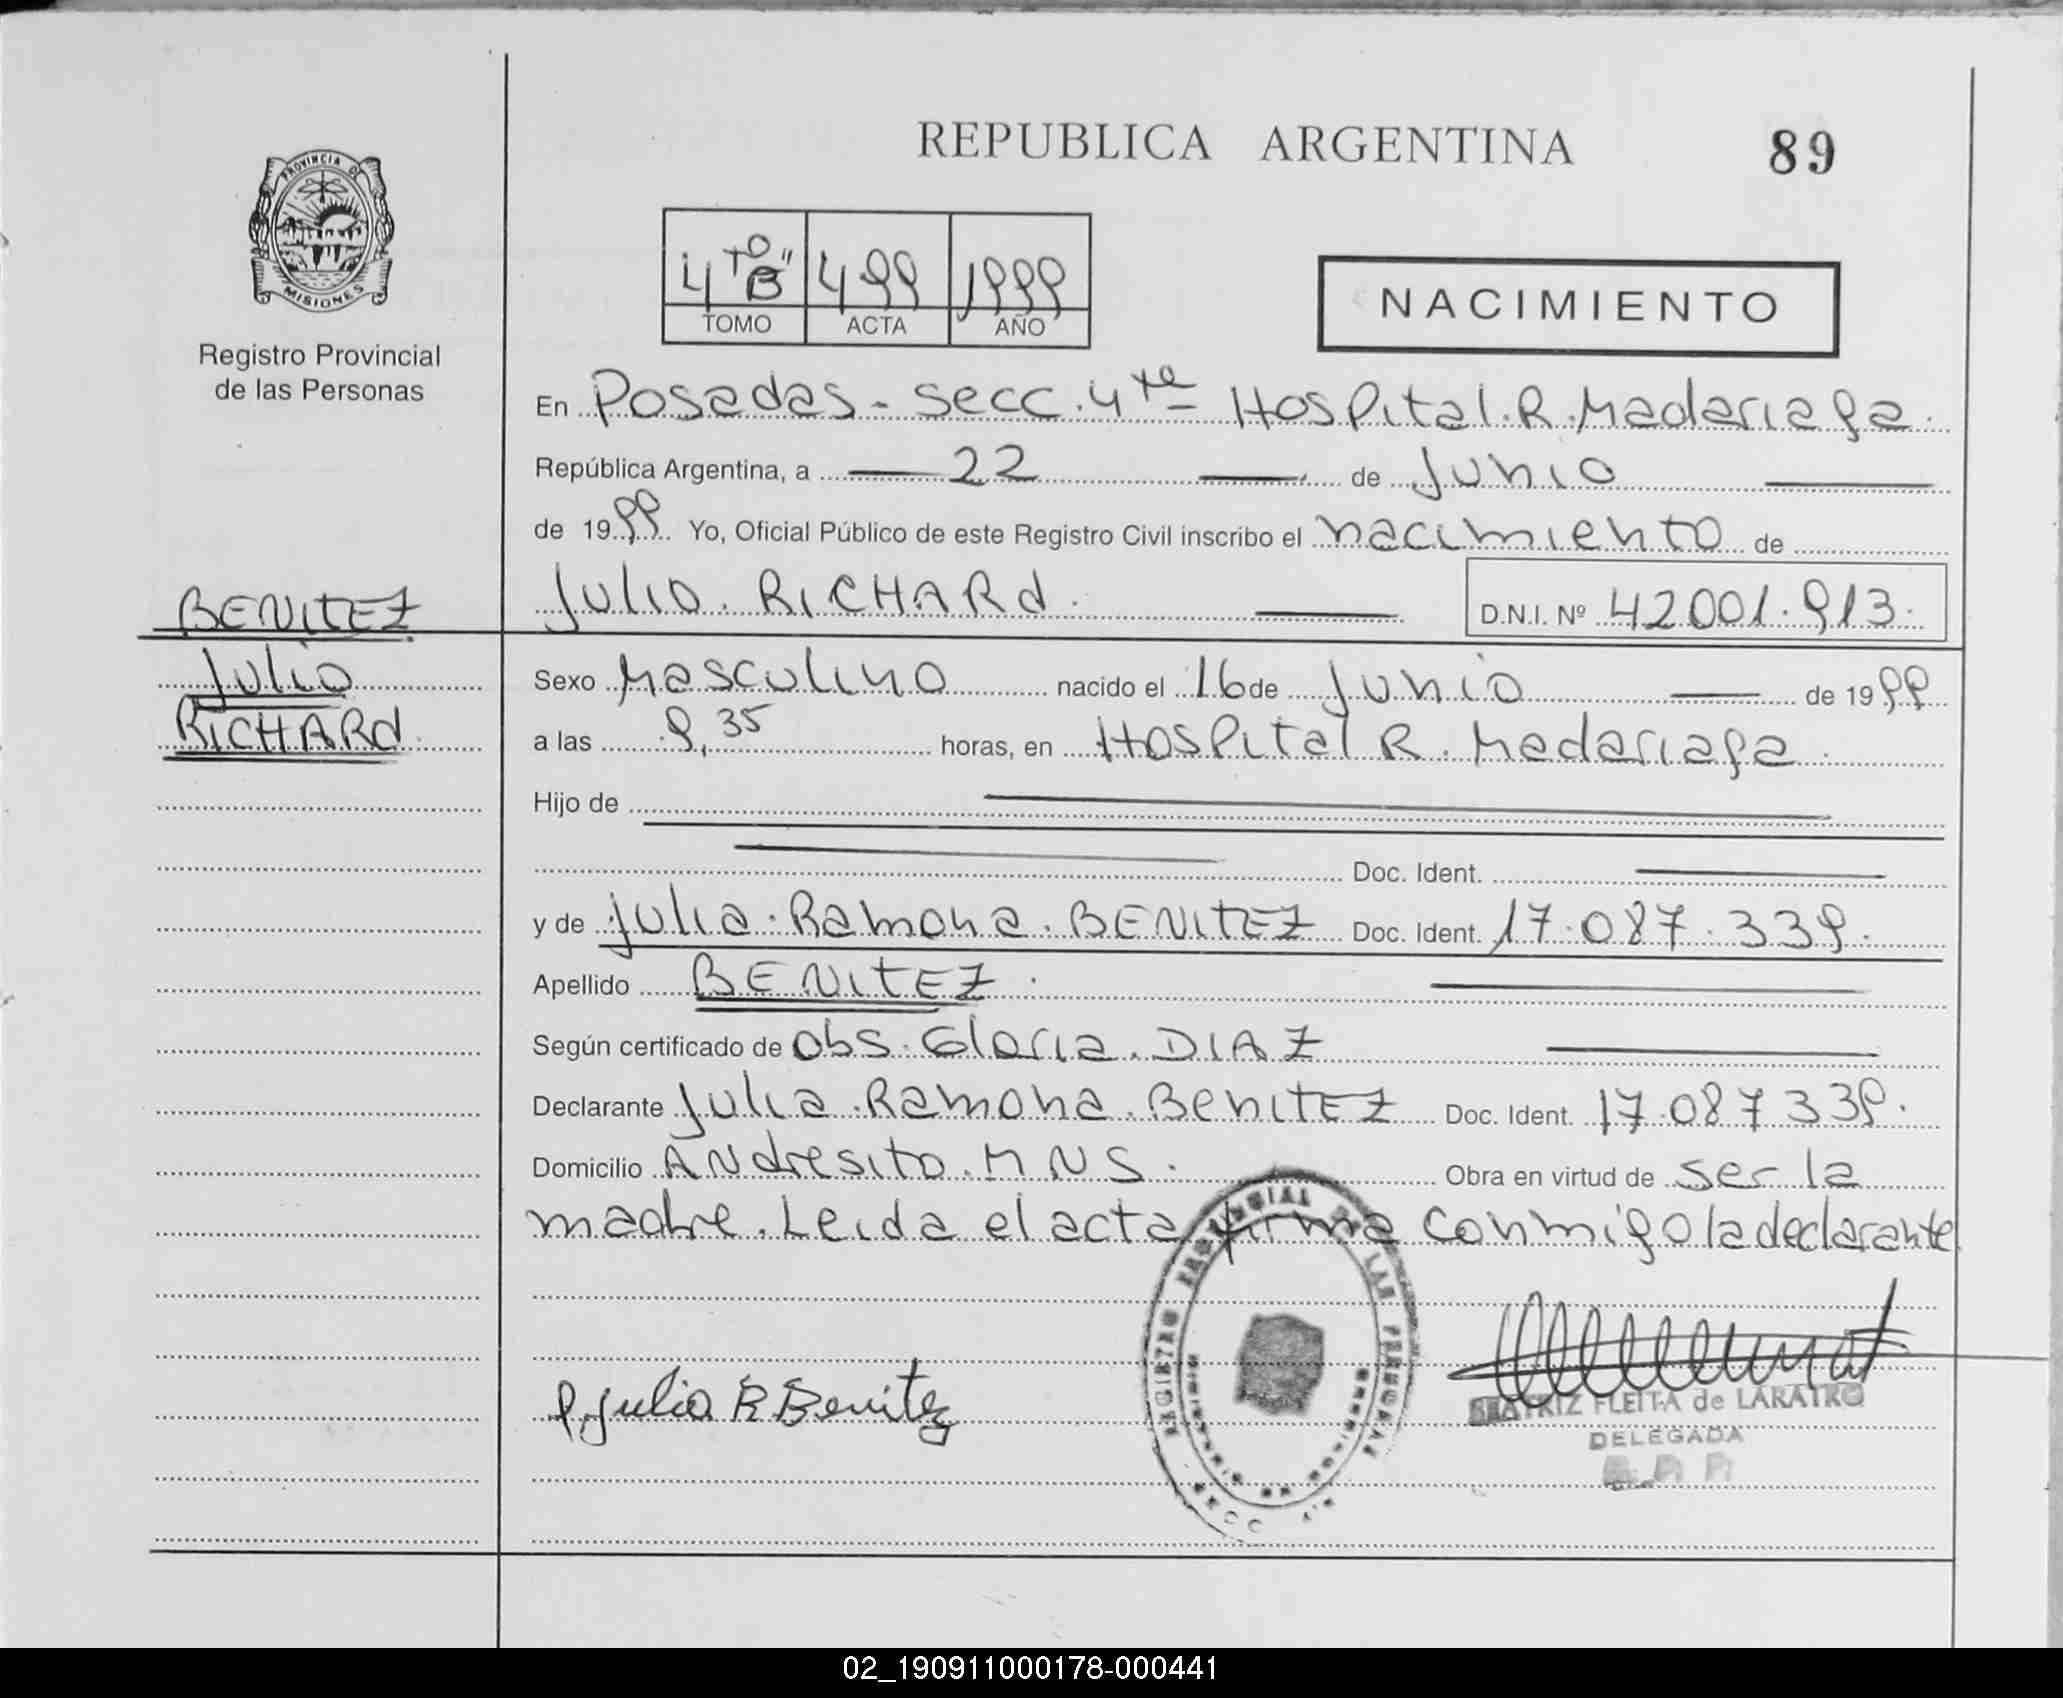 REPUBLICA ARGENTINA
89
PROVINCIA DE
MISIONES
Registro Provincial
de las Personas
4to "B" 499 1999
TOMO ACTA AÑO
NACIMIENTO
En Posadas - Secc. 4ta Hospital R. Madariaga.
República Argentina, a 22 de Junio
de 1999 Yo, Oficial Público de este Registro Civil inscribo el nacimiento de
Julio RICHARd. D.N.I. Nº 42001.913.
BENITEZ
Julio
RICHARd
Sexo Masculino nacido el 16 de Junio de 1999
a las 9,35 horas, en Hospital R. Madariaga.
Hijo de
Doc. Ident.
y de Julia Ramona BENITEZ Doc. Ident. 17.087.339.
Apellido BENITEZ.
Según certificado de Obs. Gloria DIAZ
Declarante Julia Ramona BenitEZ Doc. Ident. 17.087339.
Domicilio Andresito. MNS. Obra en virtud de ser la
madre. Leida el acta firma conmigo la declarante
REGISTRO PROVINCIAL DE LAS PERSONAS
MISIONES
SECC
Julia R Benitez
BEATRIZ FLEITA de LARATRO
DELEGADA
02_190911000178-000441